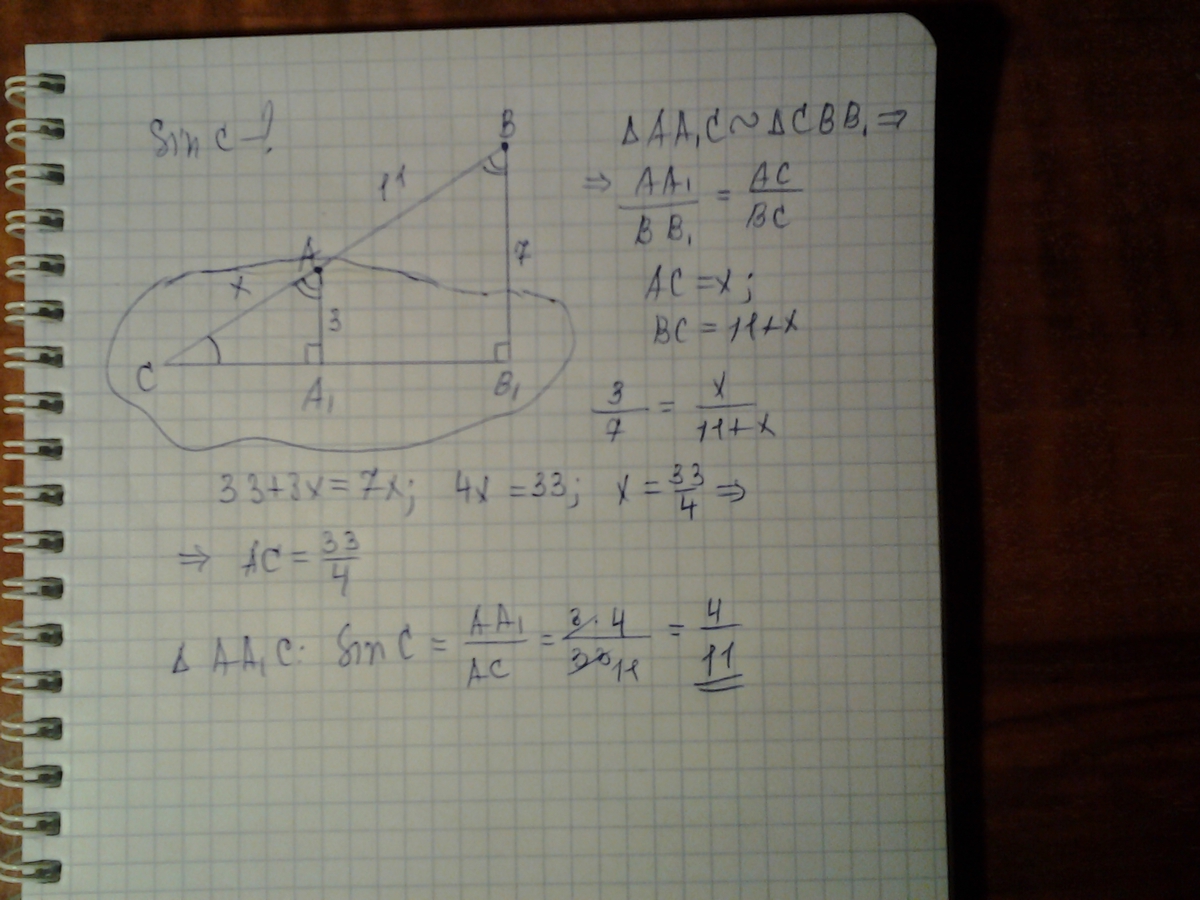 Sin C - ?
B
11
7
A
x
3
C
A₁
B₁
Δ AA₁C ~ ΔCBB₁ ⇒
⇒ AA₁/BB₁ = AC/BC
AC = x;
BC = 11+x
3/7 = x/11+x
33+3x = 7x; 4x = 33; x = 33/4 ⇒
⇒ AC = 33/4
Δ AA₁C: Sin C = AA₁/AC = 3·4/33 11 = 4/11